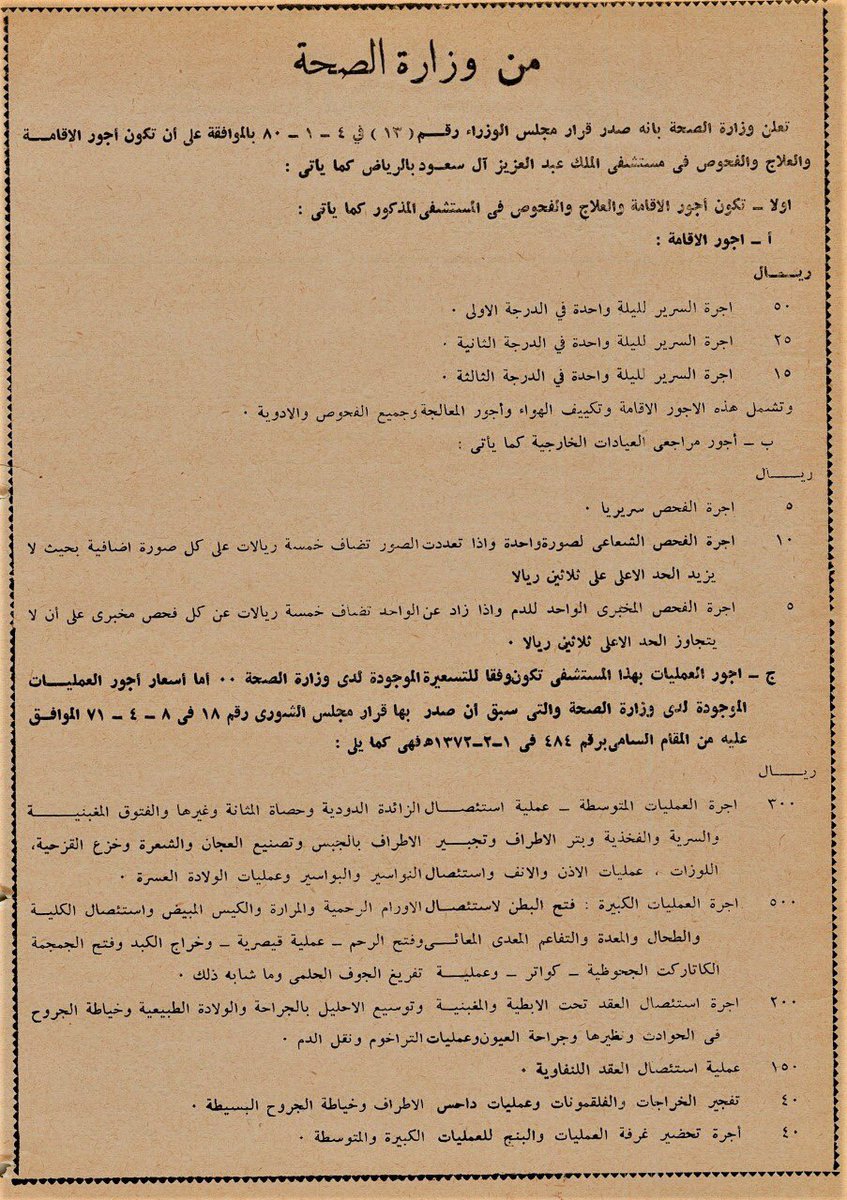 من وزارة الصحة
تعلن وزارة الصحة بانه صدر قرار مجلس الوزراء رقم (١٣) في ٤ – ١ – ٨٠ بالموافقة على أن تكون أجور الاقامة
والعلاج والفحوص فى مستشفى الملك عبد العزيز آل سعود بالرياض كما يأتى :
اولا – تكون أجور الاقامة والعلاج والفحوص فى المستشفى المذكور كما يأتى :
أ – اجور الاقامة :
ريال
٥٠ اجرة السرير لليلة واحدة في الدرجة الاولى ٠
٢٥ اجرة السرير لليلة واحدة في الدرجة الثانية ٠
١٥ اجرة السرير لليلة واحدة في الدرجة الثالثة ٠
وتشمل هذه الاجور الاقامة وتكييف الهواء وأجور المعالجة وجميع الفحوص والادوية ٠
ب – أجور مراجعى العيادات الخارجية كما يأتى :
ريال
٥ اجرة الفحص سريريا ٠
١٠ اجرة الفحص الشعاعى لصورة واحدة واذا تعددت الصور تضاف خمسة ريالات على كل صورة اضافية بحيث لا
يزيد الحد الاعلى على ثلاثين ريالا
٥ اجرة الفحص المخبرى الواحد للدم واذا زاد عن الواحد تضاف خمسة ريالات عن كل فحص مخبرى على أن لا
يتجاوز الحد الاعلى ثلاثين ريالا ٠
ج – اجور العمليات بهذا المستشفى تكون وفقا للتسعيرة الموجودة لدى وزارة الصحة ٠٠ أما أسعار أجور العمليات
الموجودة لدى وزارة الصحة والتى سبق أن صدر بها قرار مجلس الشورى رقم ١٨ فى ٨ – ٤ – ٧١ الموافق
عليه من المقام السامى برقم ٤٨٤ فى ١–٢–١٣٧٢ه فهى كما يلى :
ريال
٣٠٠ اجرة العمليات المتوسطة – عملية استئصال الزائدة الدودية وحصاة المثانة وغيرها والفتوق المغبنية
والسرية والفخذية وبتر الاطراف وتجبير الاطراف بالجبس وتصنيع العجان والشعرة وخزع القزحية،
اللوزات ، عمليات الاذن والانف واستئصال النواسير والبواسير وعمليات الولادة العسرة ٠
٥٠٠ اجرة العمليات الكبيرة : فتح البطن لاستئصال الاورام الرحمية والمرارة والكيس المبيض واستئصال الكلية
والطحال والمعدة والتفاعم المعدى المعائى وفتح الرحم – عملية قيصرية – وخراج الكبد وفتح الجمجمة
الكاتاركت الجحوظية – كواتر – وعملية تفريغ الجوف الحلمى وما شابه ذلك ٠
٢٠٠ اجرة استئصال العقد تحت الابطية والمغبنية وتوسيع الاحليل بالجراحة والولادة الطبيعية وخياطة الجروح
فى الحوادث ونظيرها وجراحة العيون وعمليات التراخوم ونقل الدم ٠
١٥٠ عملية استئصال العقد اللنفاوية ٠
٤٠ تفجير الخراجات والفلقمونات وعمليات داحس الاطراف وخياطة الجروح البسيطة ٠
٤٠ أجرة تحضير غرفة العمليات والبنج للعمليات الكبيرة والمتوسطة ٠